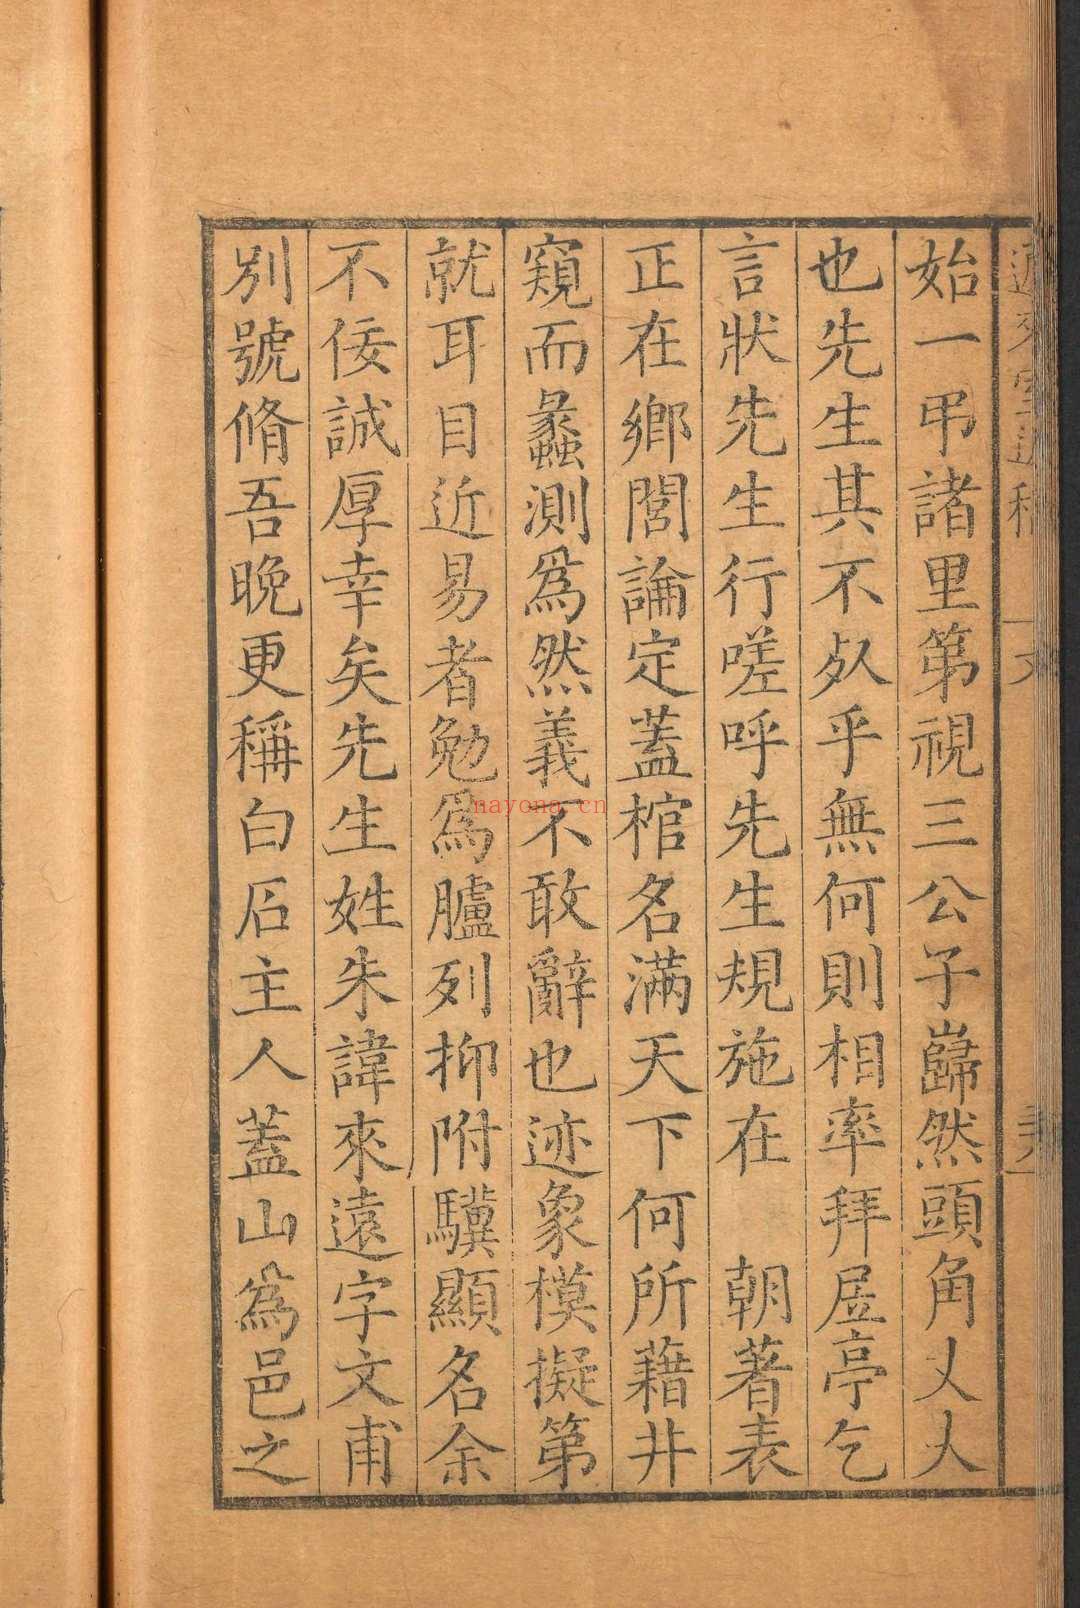 始一弔諸里第視三公子巋然頭角丈人
也先生其不死乎無何則相率拜屋亭乞
言狀先生行嗟呼先生規施在　朝著表
正在鄉閭論定蓋棺名滿天下何所藉井
窺而蠡測爲然義不敢辭也迹象模擬第
就耳目近易者勉爲臚列抑附驥顯名余
不佞誠厚幸矣先生姓朱諱來遠字文甫
別號脩吾晚更稱白石主人蓋山爲邑之
nayona.cn